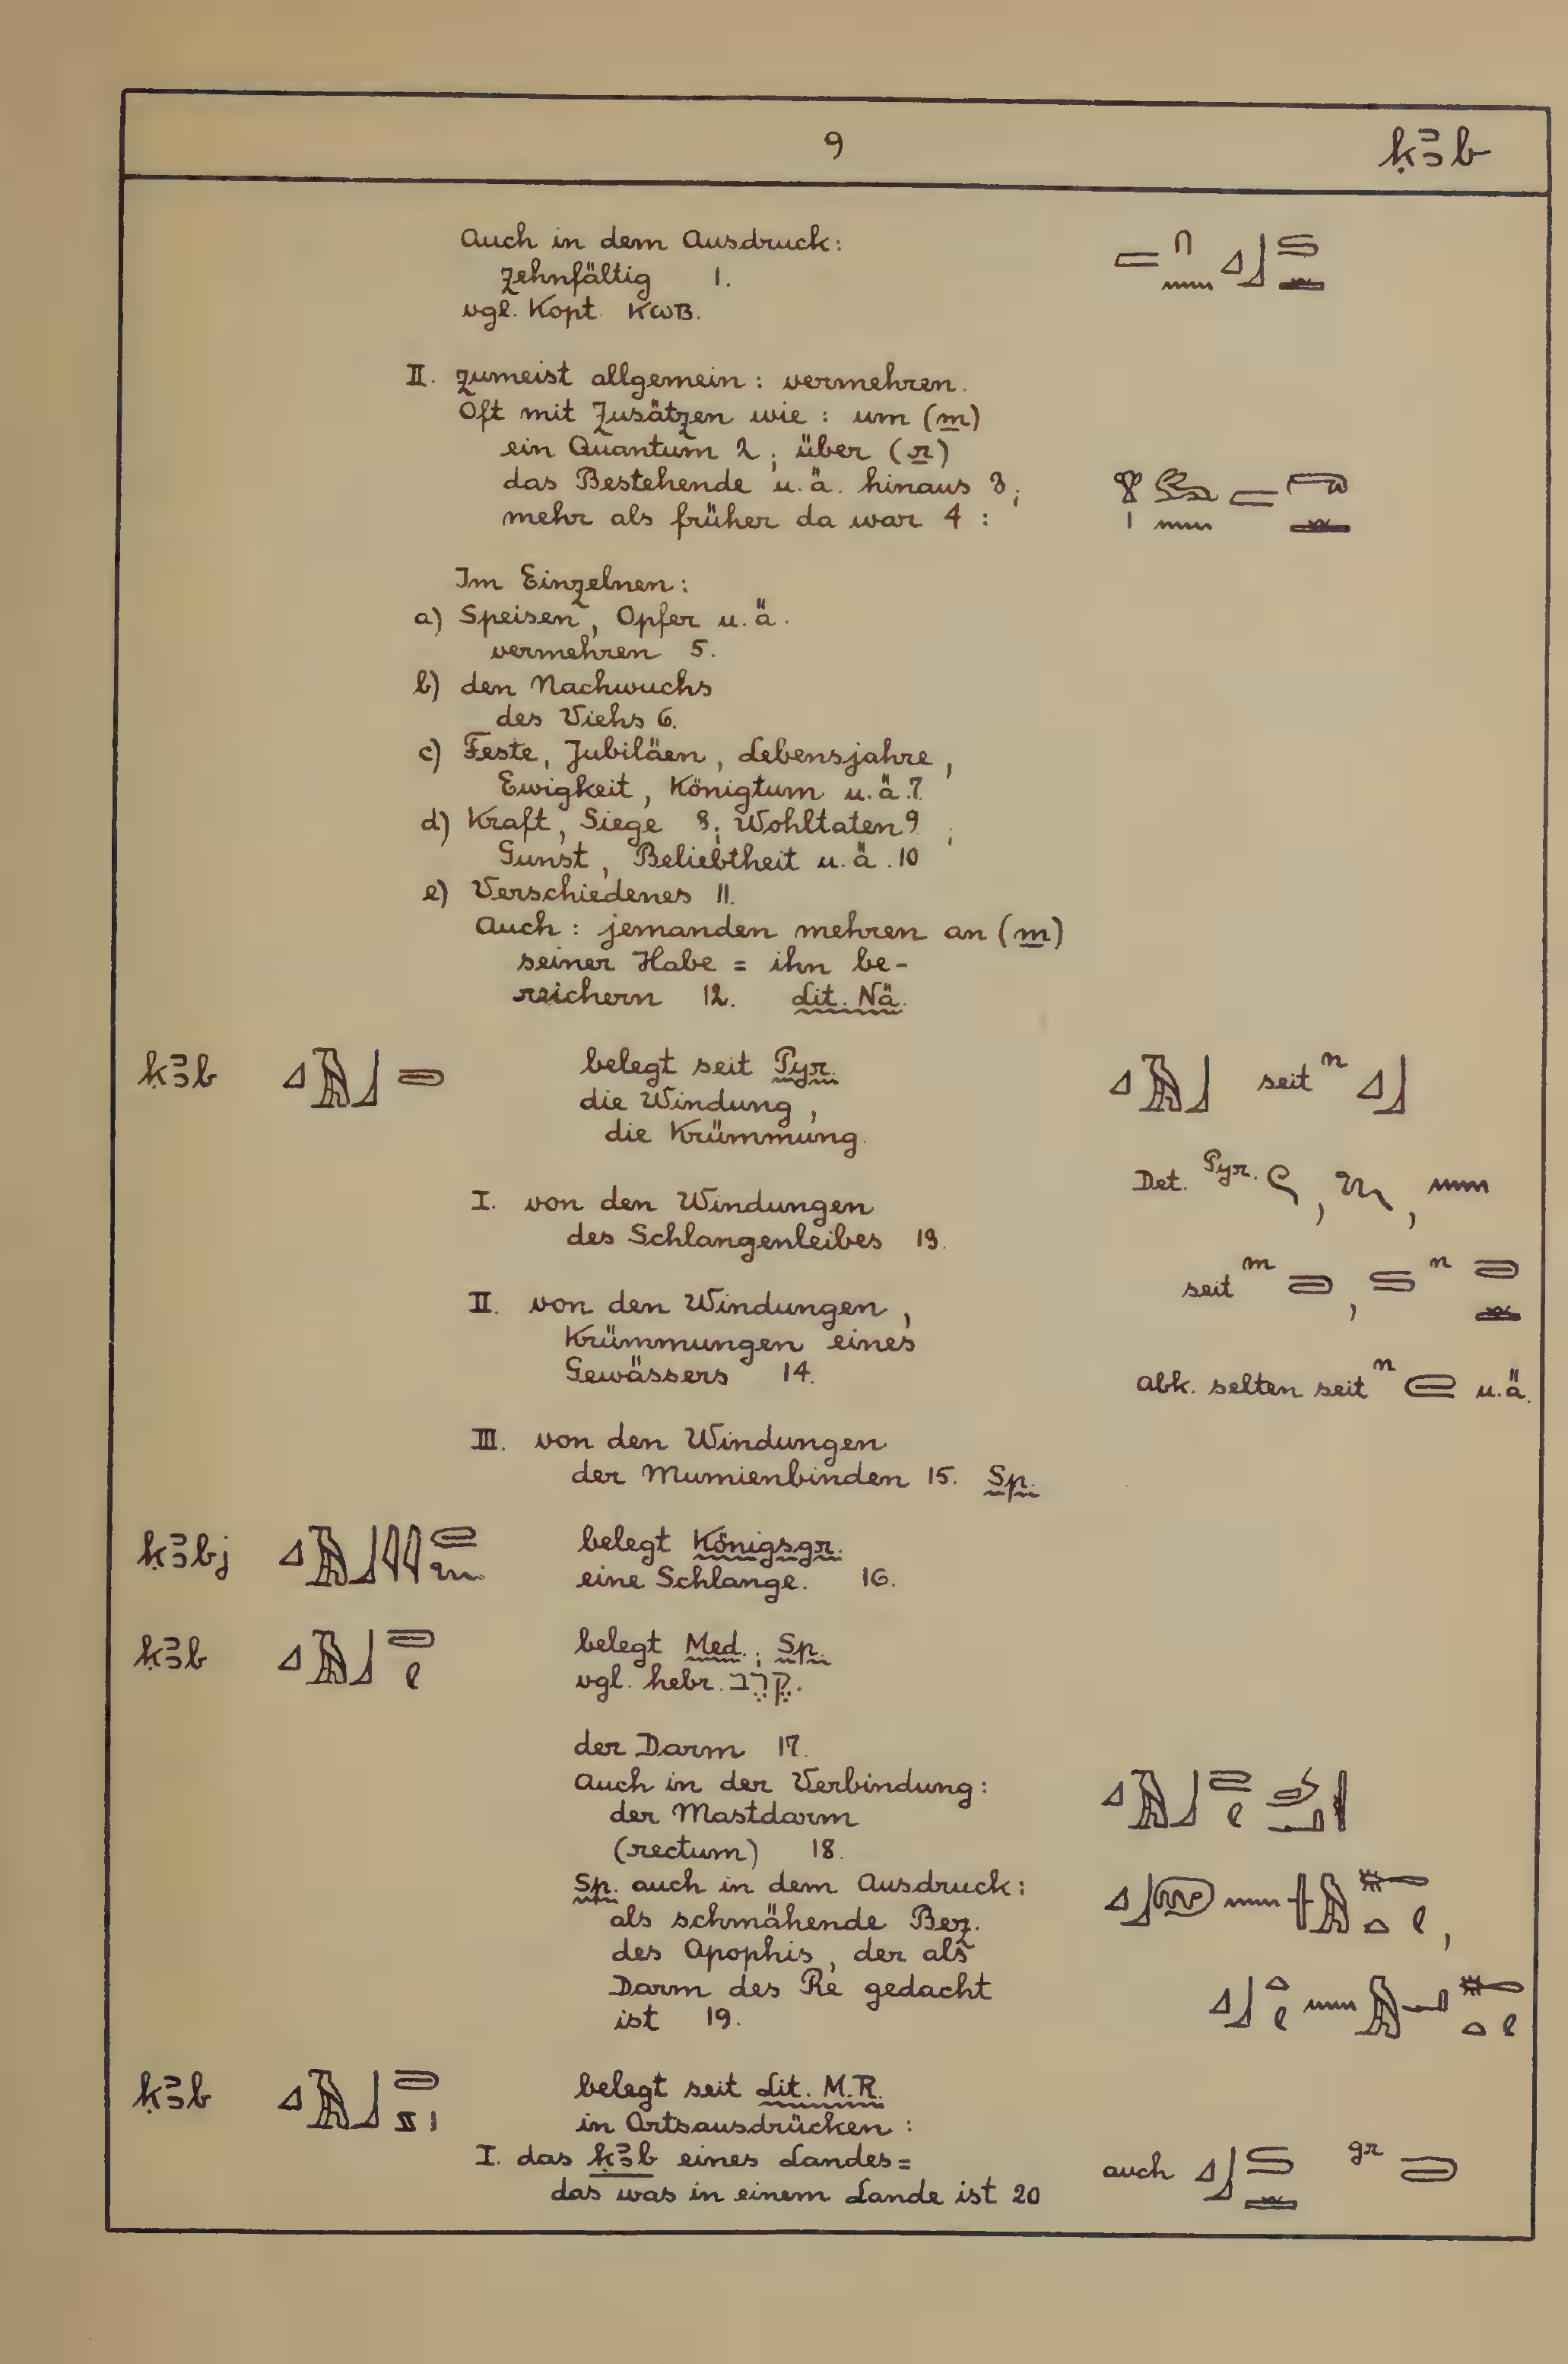 9 ḳꜣb
Auch in dem Ausdruck:
zehnfältig 1.
vgl. Kopt. ⲕⲱⲃ.
II. zumeist allgemein: vermehren.
Oft mit Zusätzen wie: um (m)
ein Quantum 2; über (r)
das Bestehende u.ä. hinaus 3;
mehr als früher da war 4:
Im Einzelnen:
a) Speisen, Opfer u.ä.
vermehren 5.
b) den Nachwuchs
des Viehs 6.
c) Feste, Jubiläen, Lebensjahre,
Ewigkeit, Königtum u.ä. 7.
d) Kraft, Siege 8; Wohltaten 9;
Gunst, Beliebtheit u.ä. 10
e) Verschiedenes 11.
Auch: jemanden mehren an (m)
seiner Habe = ihn be-
reichern 12. Lit. Nä.
ḳꜣb belegt seit Pyr. seit n
die Windung,
die Krümmung.
Det. Pyr. , ,
I. von den Windungen
des Schlangenleibes 13.
seit m , n
II. von den Windungen,
Krümmungen eines
Gewässers 14. Abk. selten seit n u.ä.
III. von den Windungen
der Mumienbinden 15. Sp.
ḳꜣbj belegt Königsgr.
eine Schlange. 16.
ḳꜣb belegt Med.; Sp.
vgl. hebr. קֶרֶב.
der Darm 17.
Auch in der Verbindung:
der Mastdarm
(rectum) 18.
Sp. auch in dem Ausdruck:
als schmähende Bez.
des Apophis, der als
Darm des Re gedacht
ist 19.
ḳꜣb belegt seit Lit. M.R.
in Ortsausdrücken:
I. das ḳꜣb eines Landes =
auch gr
das was in einem Lande ist 20